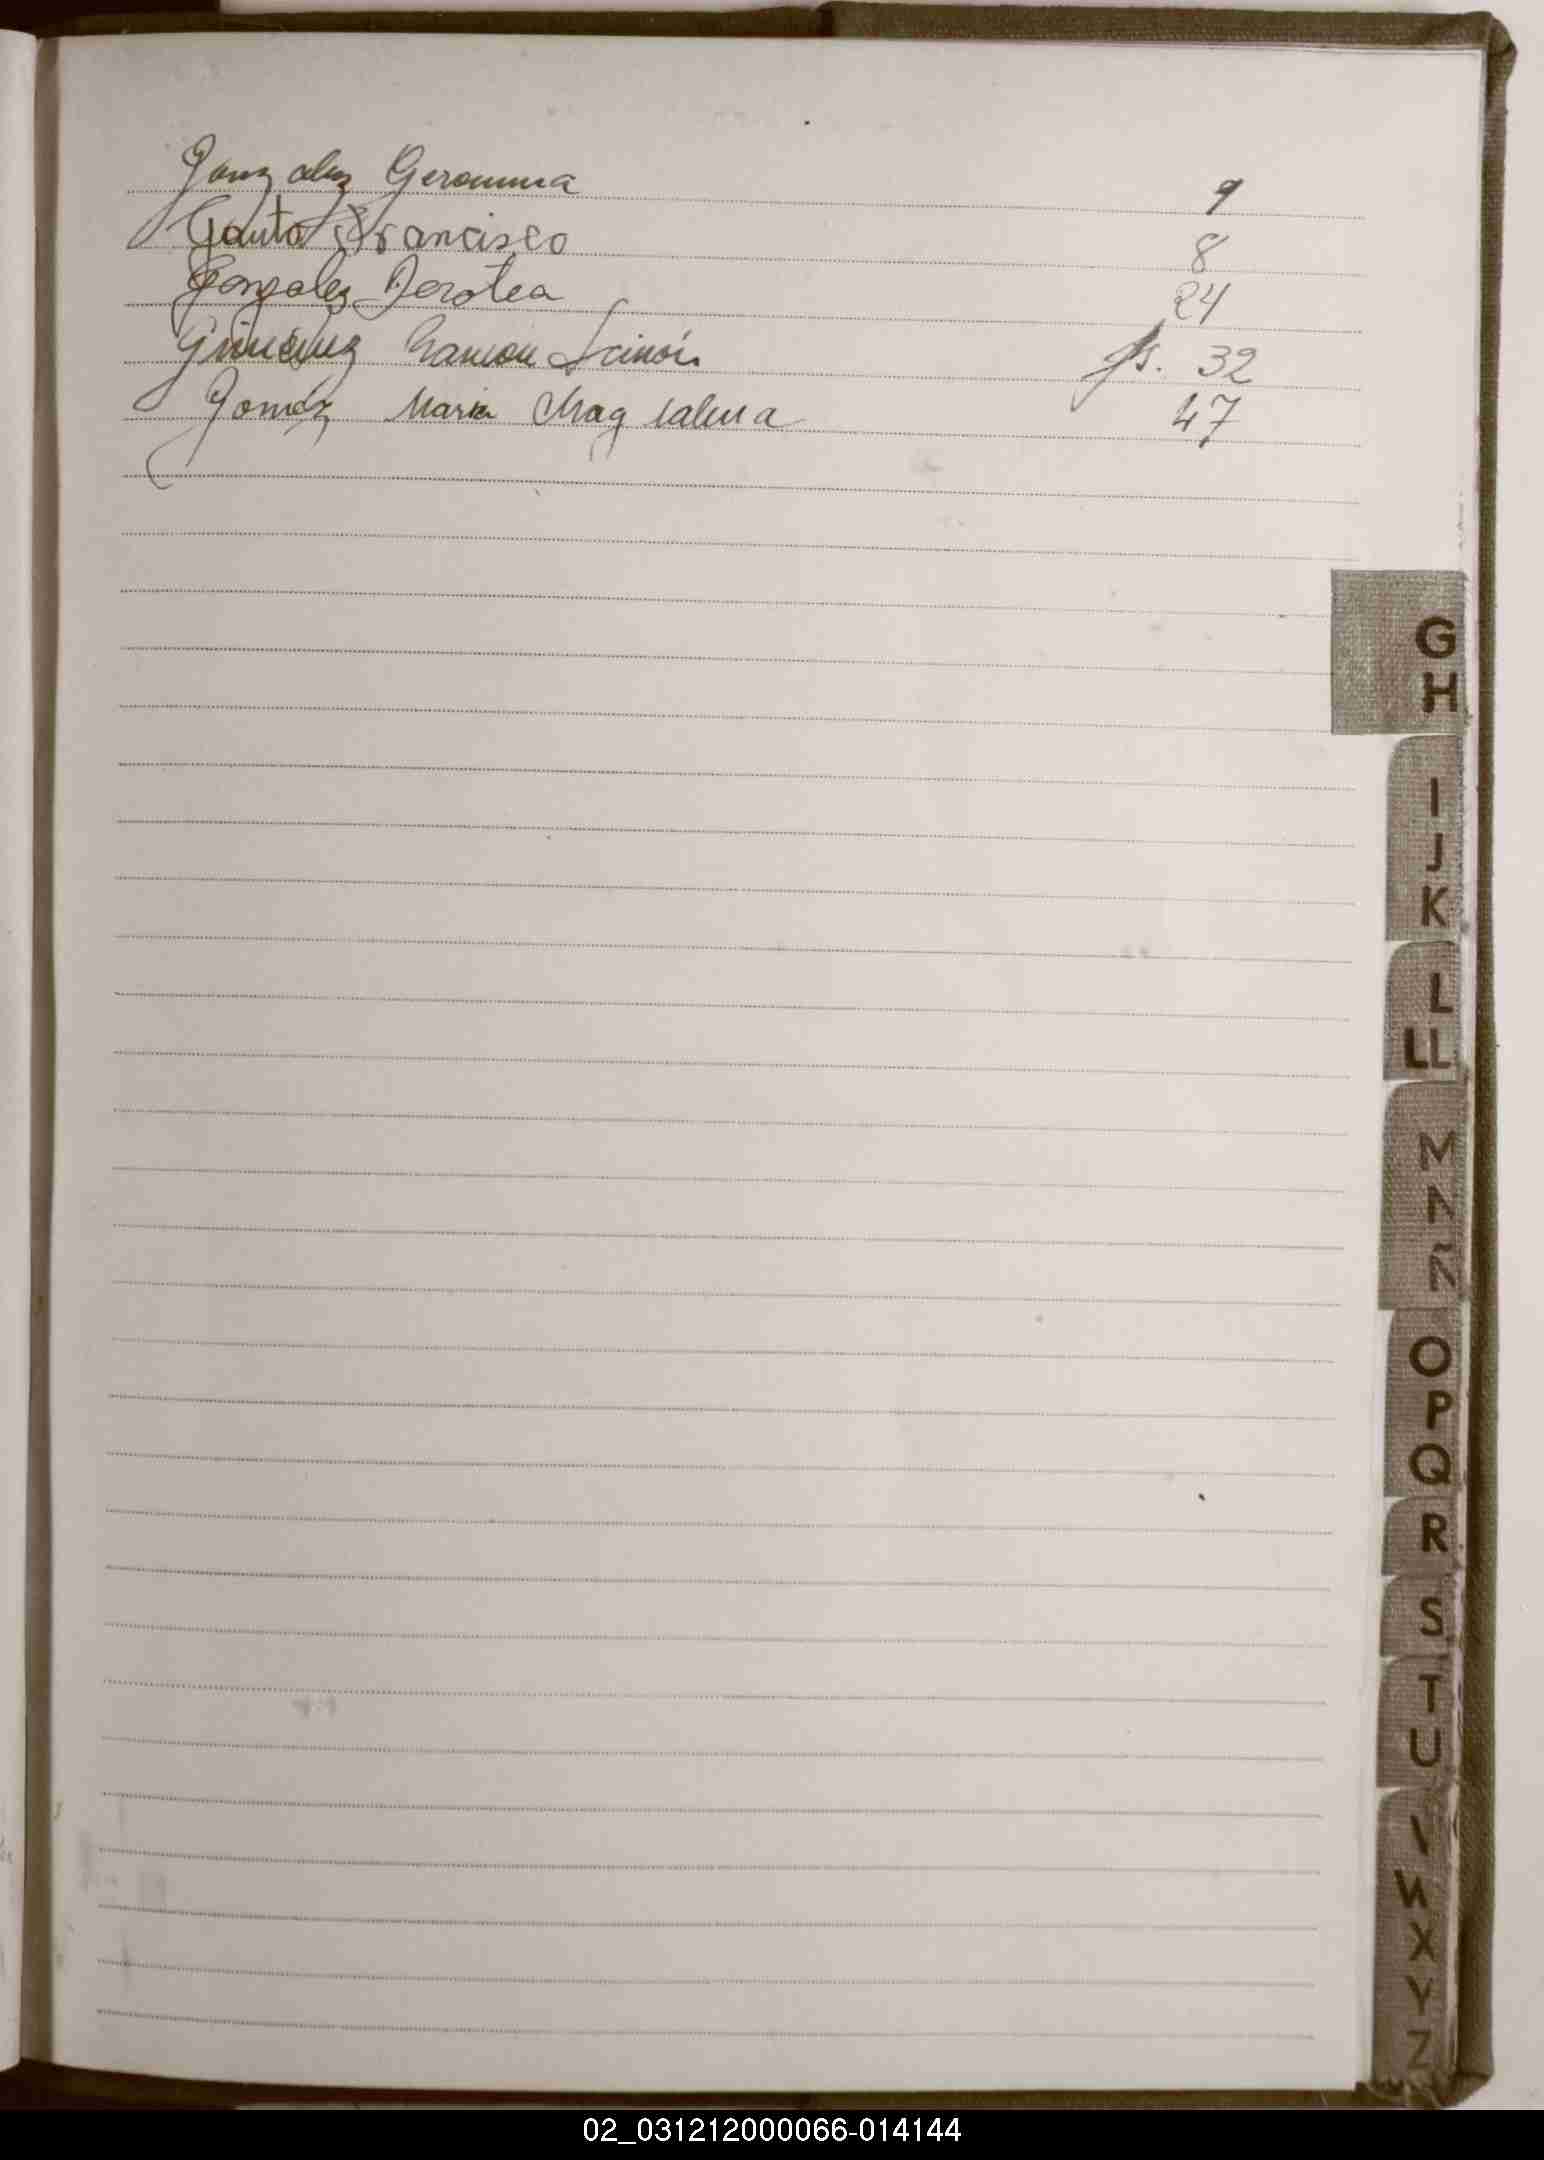 Gonzalez Geronima 9
Gauto Francisco 8
Gonzalez Dorotea 24
Gimenez Ramon fs. 32
Gomez Maria Magdalena 47
G
H
I
J
K
L
LL
M
N
Ñ
O
P
Q
R
S
T
U
V
W
X
Y
Z
02_031212000066-014144